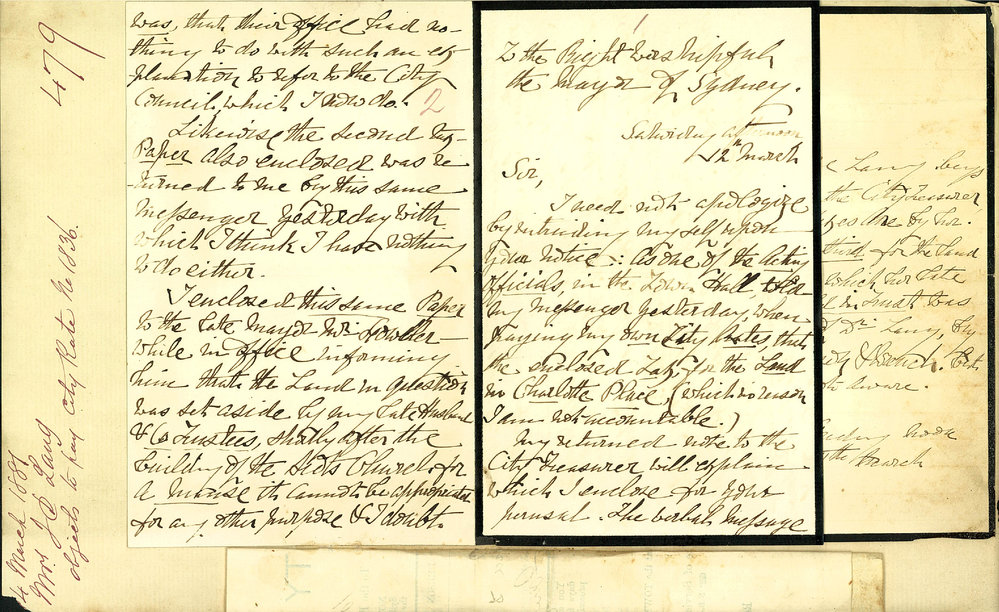 To the Right Worshipful
the Mayor of Sydney.
Saturday afternoon
12th March
Sir,
I need not apologize
by intruding myself upon
your notice: As one of the acting
officials, in the Town Hall, told
my messenger yesterday, when
paying my own City Rates, that
the enclosed Tax, for the Land
in Charlotte Place, (which no reason
I am not accountable.)
My returned note to the
City Treasurer will explain
which I enclose for your
perusal. The verbal message
was, that their office had no-
thing to do with such an ex-
planation to refer to the City
Council, which I now do.
2
Likewise the second
Paper also enclosed was re-
turned to me by this same
messenger yesterday with
which I think I have nothing
to do either.
I enclosed this same Paper
to the late Mayor Mr Fowler
while in office informing
him that the Land in question
was set aside by my late Husband
& Co Trustees, shortly after the
building of the Scots Church for
a manse it cannot be appropriated
for any other purpose & I doubt
Lang begs
the City Treasurer
for the Land
which her late
Dr Lang, by
aware.
March
479
4 March 1881
Mrs J D Lang
objects to pay City Rate no 1836.